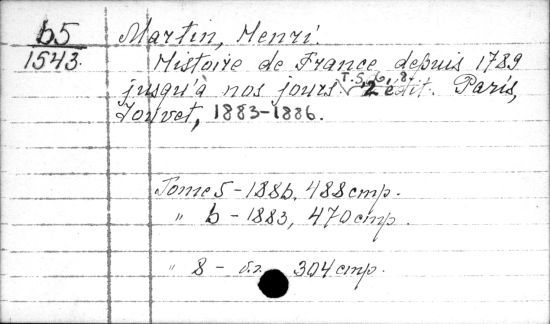 b5
1543.
Martin, Henri
Histoire de France depuis 1789
jusqu'à nos jours. T. 5, 6, 8. 2 édit. Paris,
Jouvet, 1883-1886.
Tome 5 - 1886, 488 cmp.
" b - 1883, 470 cmp.
" 8 - б.г. 304 cmp.